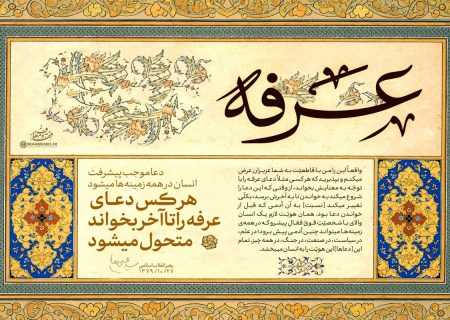 عرفه
واقعاً این را من با قاطعیت به شما عزیزان عرض
میکنم و بپذیرید که هر کسی مثلاً دعای عرفه را با
توجّه به معنایش بخواند، از وقتی که این دعا را
شروع میکند به خواندن تا به آخرش برسد، بکلّی
تغییر میکند [نسبت] به آن آدمی که قبل از
خواندن دعا بود. همان هویّت لازم یک انسان
والای با شخصیّت قویِّ فعّالِ پیشرو که در همه‌ی
زمینه‌ها میتواند چنین آدمی پیش برود؛ در علم،
در سیاست، در صنعت، در جنگ، در همه چیز تمام
این [دعاها] این هویّت را به انسان میبخشد.
دعا موجب پیشرفت
انسان در همه زمینه‌ها میشود
هر کس دعای
عرفه را تا آخر بخواند
متحول میشود
رهبر انقلاب اسلامی
۱۳۷۹/۱۰/۲۷